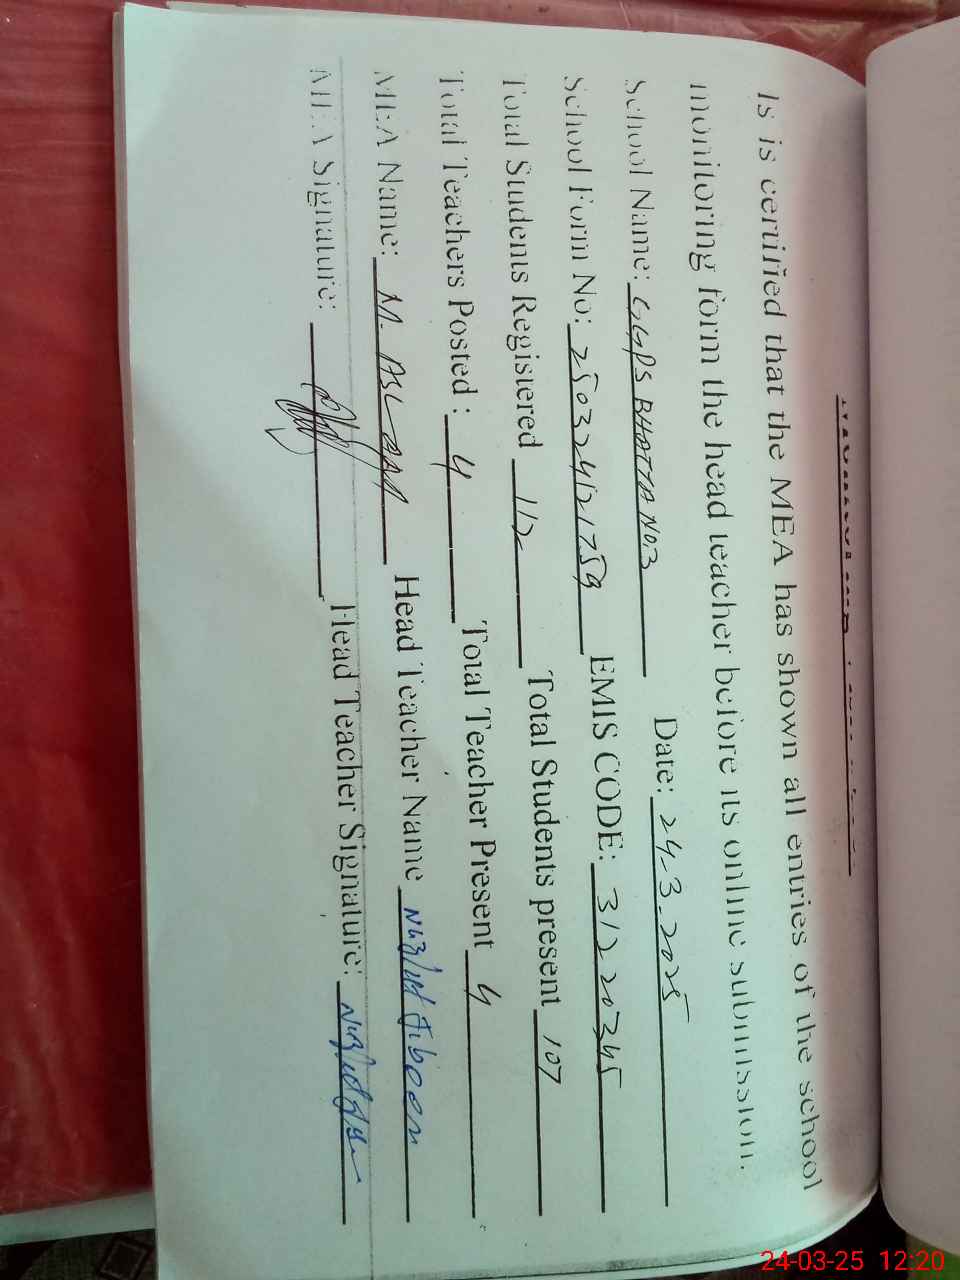 Is is certified that the MEA has shown all entries of the school
monitoring form the head teacher before its online submission.
School Name: GGPS BHATTA NO.3 Date: 24-3-2025
School Form No: 250324121759 EMIS CODE: 31220345
Total Students Registered 112 Total Students present 107
Total Teachers Posted : 4 Total Teacher Present 4
MEA Name: M. ASLAM Head Teacher Name
MEA Signature: Head Teacher Signature:
24-03-25 12:20